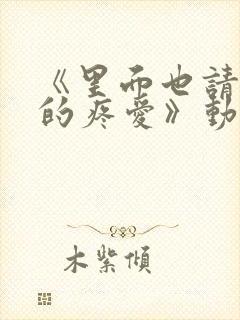 《里而也請
的疼愛》動
木紫傾